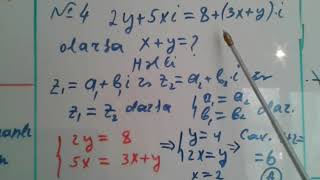 №4 2y+5xi=8+(3x+y)·i
olarsa x+y=?
Həlli
z₁=a₁+b₁i və z₂=a₂+b₂·i və
z₁=z₂ olarsa { a₁=a₂ b₁=b₂ olar.
{ 2y=8 5x=3x+y ⇒ { y=4 2x=y x=2 ⇒ Cav. 4+2=
=6
A